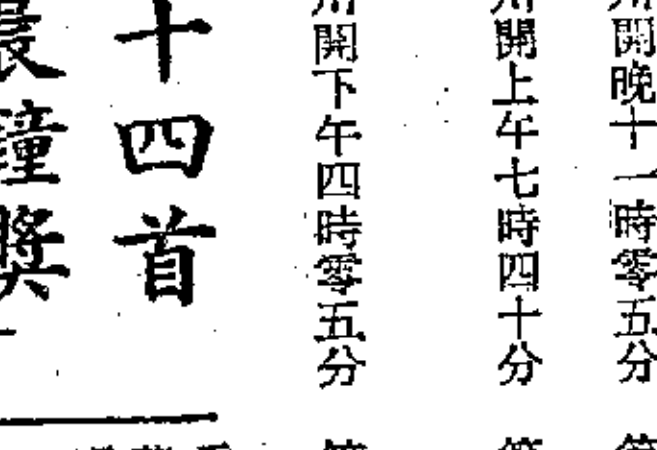 開晚十一時零五分
開上午七時四十分
開下午四時零五分
十四首
晨鐘獎